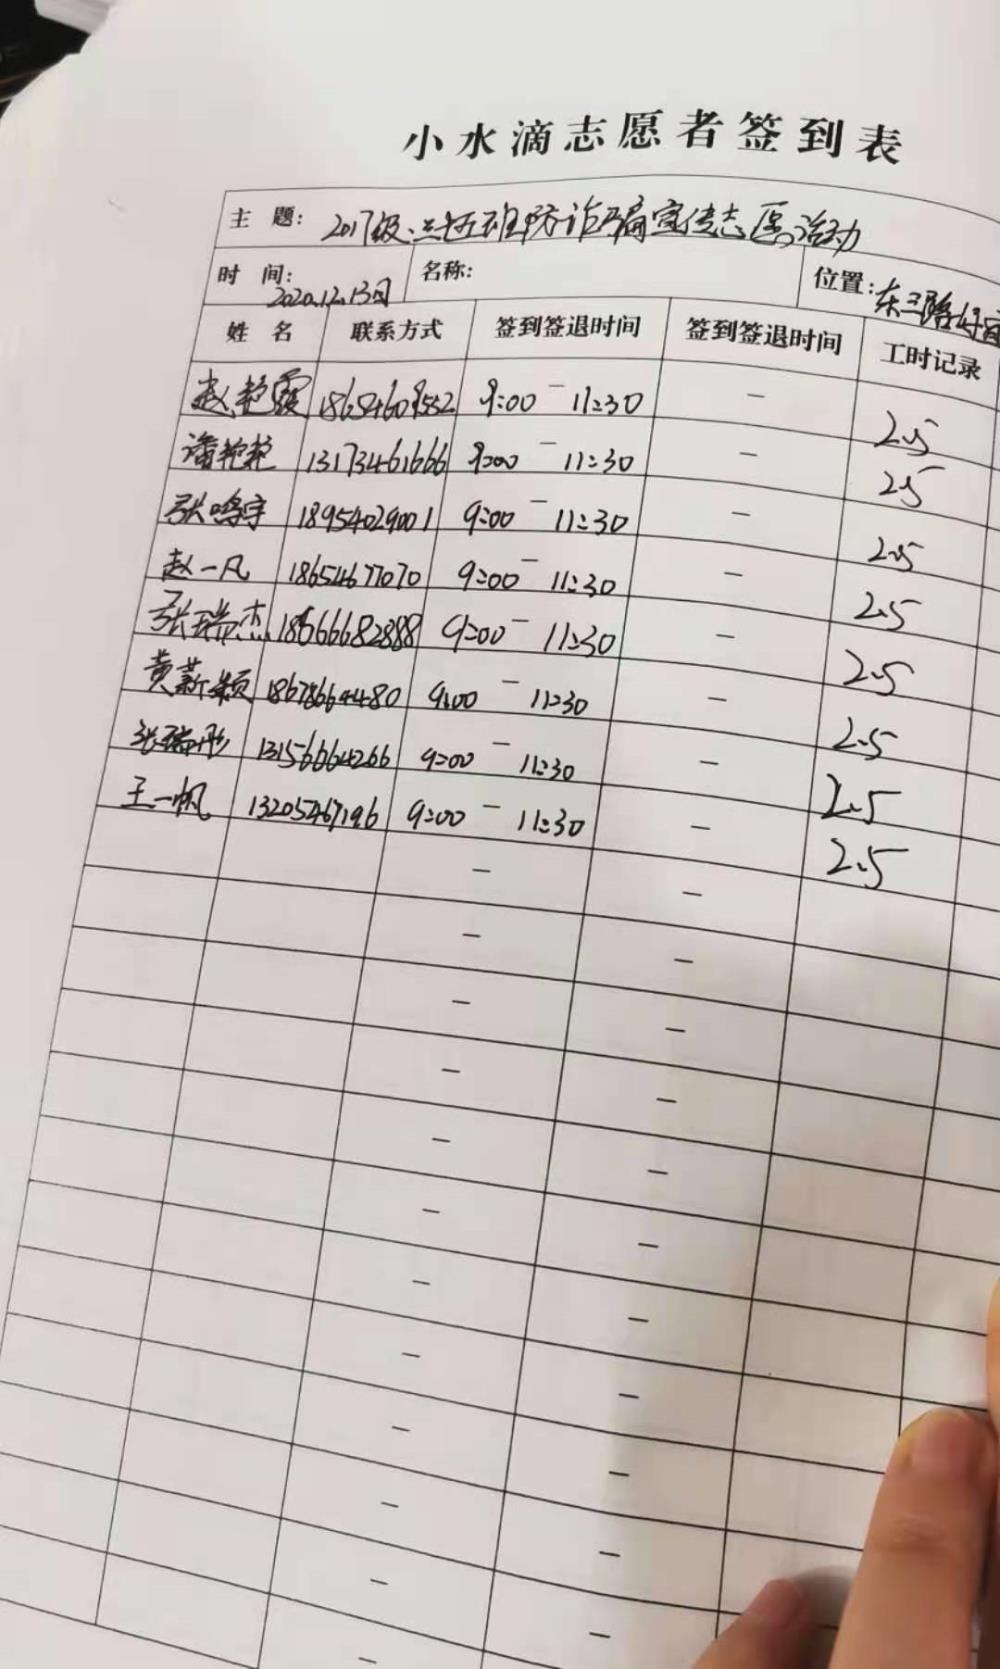 小水滴志愿者签到表
主 题: 2017级三十五班防诈骗宣传志愿活动
时 间: 2020.12.13日 名称: 位置: 东三路
姓 名 联系方式 签到签退时间 签到签退时间 工时记录
赵艳霞 18654609552 9:00 — 11:30 — 2.5
潘艳艳 13173461666 9:00 — 11:30 — 2.5
张鸣宇 18954029001 9:00 — 11:30 — 2.5
赵一凡 18654677070 9:00 — 11:30 — 2.5
张瑞杰 18566682888 9:00 — 11:30 — 2.5
黄薪颖 18678664480 9:00 — 11:30 — 2.5
张瑞彤 13156664266 9:00 — 11:30 — 2.5
王一帆 13205467196 9:00 — 11:30 — 2.5